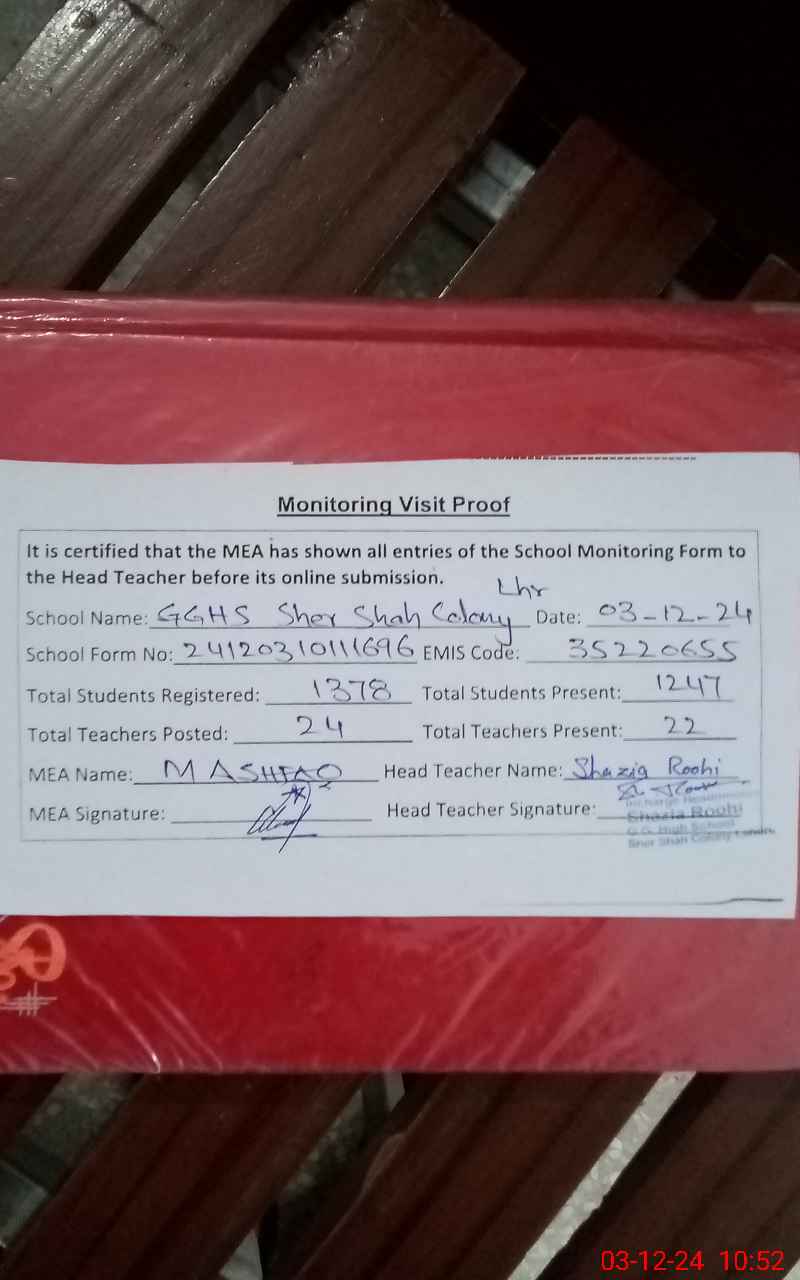 Monitoring Visit Proof
It is certified that the MEA has shown all entries of the School Monitoring Form to
the Head Teacher before its online submission.
Lhr
School Name: GGHS Sher Shah Colony Date: 03-12-24
School Form No: 24120310111696 EMIS Code: 35220655
Total Students Registered: 1378 Total Students Present: 1247
Total Teachers Posted: 24 Total Teachers Present: 22
MEA Name: M ASHFAQ Head Teacher Name: Shazia Roohi
MEA Signature: Head Teacher Signature:
Shazia Roohi
G.G. High School
Sher Shah Colony
03-12-24 10:52